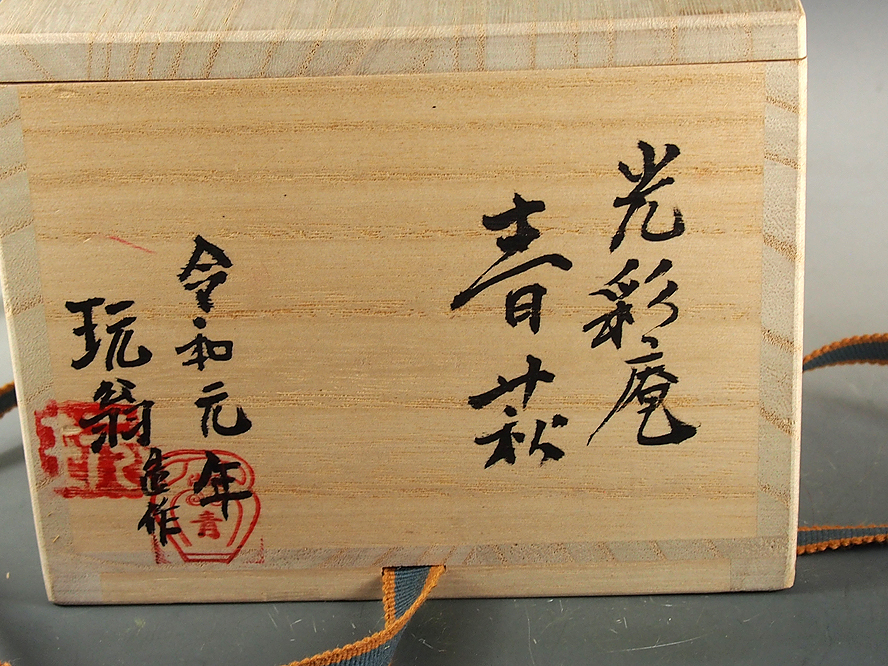 光彩庵
青萩
令和元年
玩翁
作
青